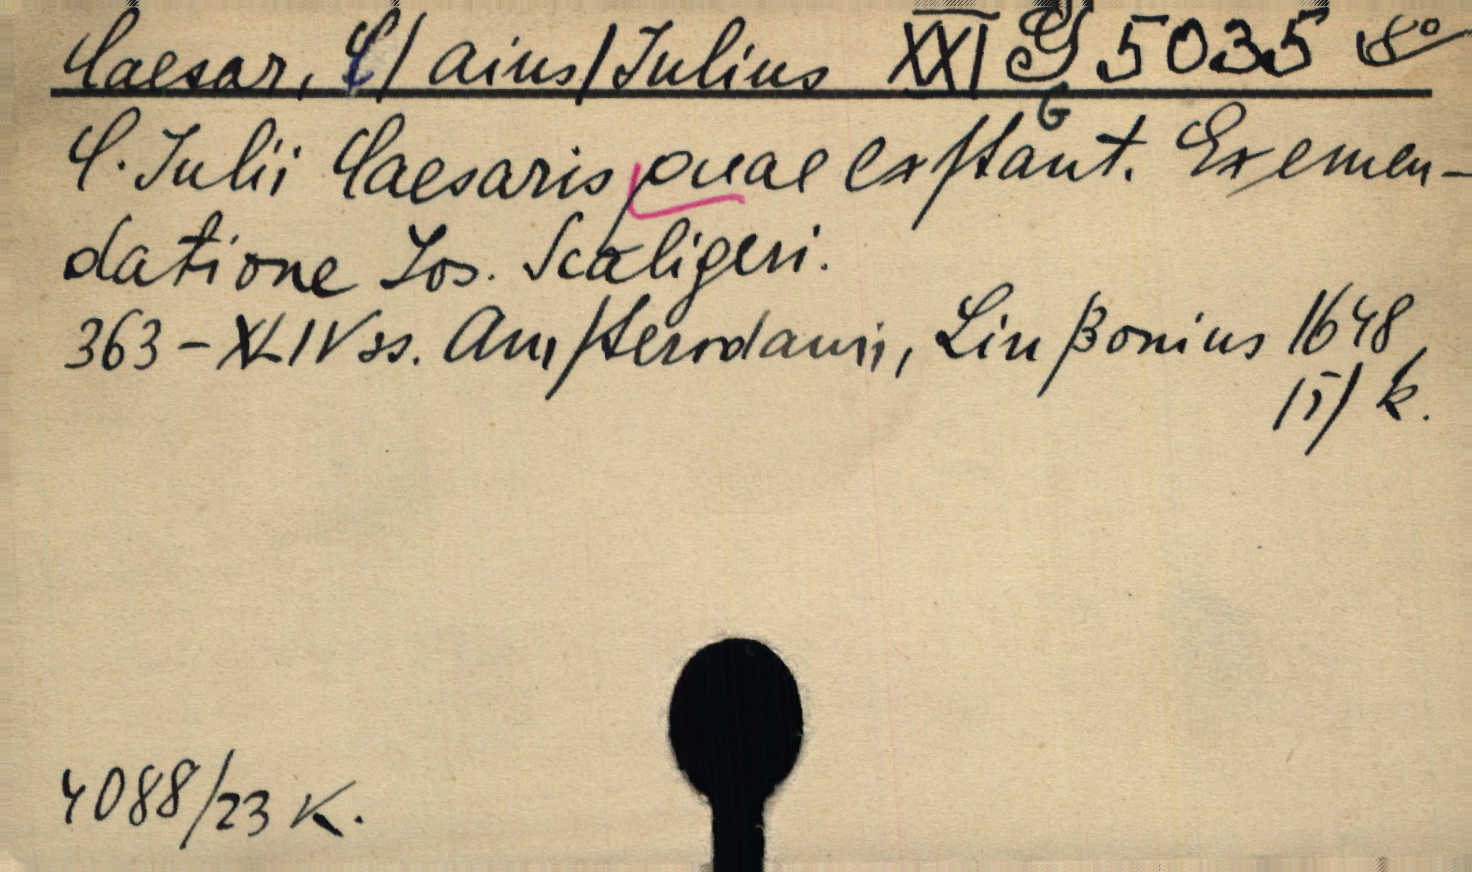 Caesar, C/aius/Julius XXI G 5035 8°
G
C. Julii Caesaris quae exstant. Ex emen-
datione Jos. Scaligeri.
363-XLIV ss. Amsterodami, Linßonius 1648
/ī/ k.
4088/23 K.